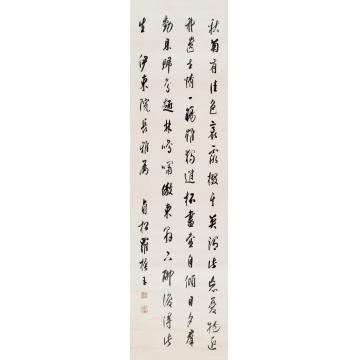 秋菊有佳色裛露掇其英汎此忘憂物遠
我遺世情一觴雖獨進杯盡壺自傾日夕羣
動息歸鳥趨林鳴嘯傲東軒下聊復得此
生 伊東院長雅屬 貞松羅振玉